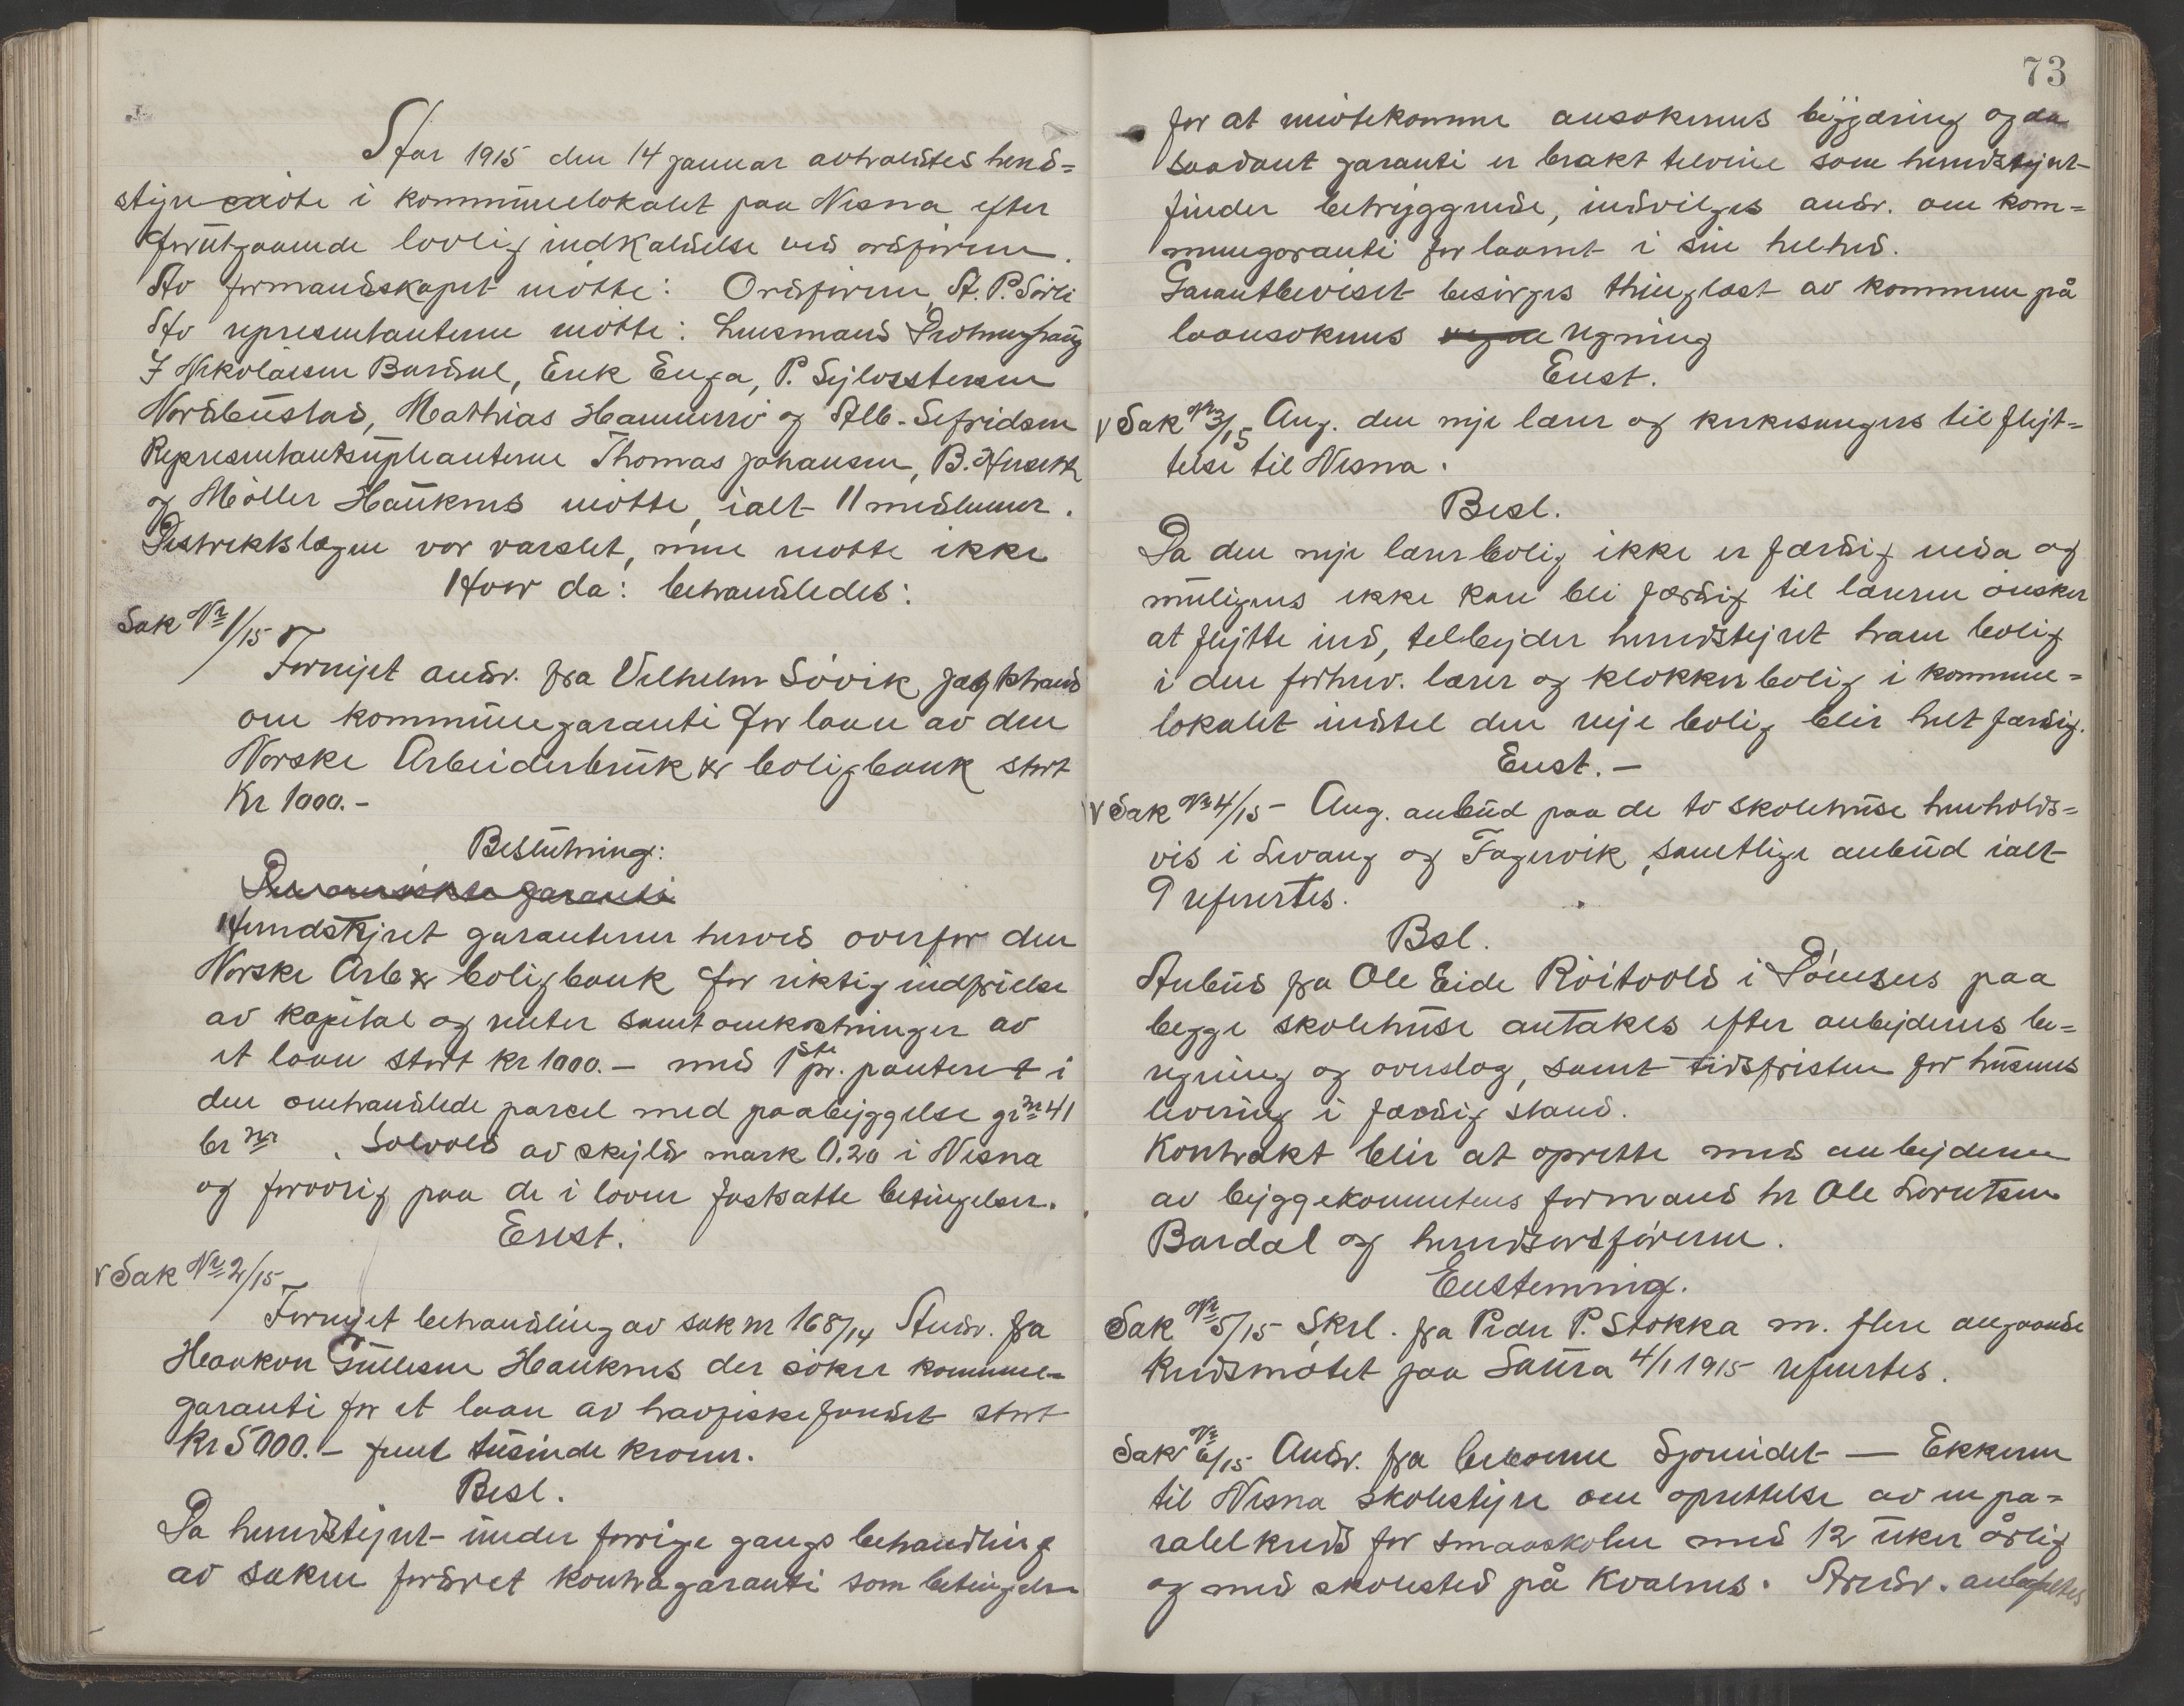 Aar 1915 den 14 januar avholdtes herds=
styremöte i kommunelokalet paa Nesna efter
forutgaaende lovlig indkaldelse ved ordföreren.
Av formandskapet mötte: Ordföreren, A. P. Sörli
Av representanterne mötte: Lensmand
J Nikolaisen Bardal, Erik Enga, P. Sylvestersen
Nordbustad, Mathias Hammerö og Alb. Sefridsen
Representantsupleanterne Thomas Johansen, B. Huseth
og Möller Hauknes mötte, ialt 11 medlemmer.
Distriktslægen var varslet, men mötte ikke
Hvor da: behandledes:
Sak Nr 1/15
Fornyet andr. fra Vilhelm Sövik
om kommunegaranti for laan av den
Norske Arbeiderbruk & boligbank stort
Kr 1000.-
Beslutning:
Den önskte garanti
Herredstyret garanterer herved overfor den
Norske Arb & boligbank for riktig indfrielse
av kapital og renter samt omkostninger av
et laan stort kr 1000.- med 1ste pr. panteret i
den omhandlede parcel med paabyggelse gr nr 41
br nr . Solvold av skyld mark 0.20 i Nesna
og forövrig paa de i loven fastsatte betingelser.
Enst.
v Sak Nr 2/15
Fornyet behandling av sak nr 168/14 Andr. fra
Haakon Tullesen Hauknes der söker kommune=
garanti for et laan av havfiskefondet stort
Kr 5000.- fem tusinde kroner.
Besl.
Da herredstyret under forrige gangs behandling
av saken fordret kontragaranti som betingelse
73
for at imötekomme ansökerens begjæring og da
saadant garanti er brakt tilveie som herredstyret
finder betryggende, indvilges andr. om kom=
munegaranti for laanet i sin helhed.
Garantbeviset besörges thinglæst av kommunen på
laansökerens vegne regning
Enst.
v Sak Nr 3/15 Ang. den nye lærer og kirkesangers til flyt=
telse til Nesna.
Besl.
Da den nye lærerbolig ikke er færdig enda og
muligens ikke kan bli færdig til læreren önsker
at flytte ind, tilbyder herredstyret ham bolig
i den forhenv. lærer og klokkerbolig i kommune=
lokalet indtil den nye bolig blir helt færdig.
Enst.-
v Sak Nr 4/15 - Ang. anbud paa de to skolehuse henholds=
vis i Levang og Fagervik, samtlige anbud ialt
9 refertes.
Bsl.
Anbud fra Ole Eide Röitvold i Dönnes paa
begge skolehuse antakes efter anbyderens be=
regning og overslag, samt tidsfristen for husenes
levering i færdig stand.
Kontrakt blir at oprette med anbyderen
av byggekomiteens formand hr Ole Lorntsen
Bardal og herredsordföreren.
Enstemmig.
Sak Nr 5/15 Skrl. fra Peder P. Stokka m. flere angaaende
kredsmötet paa Saura 4/1 1915 refertes.
Sak Nr 6/15 Andr. fra beboerne Sjonidet — Ekkeren
til Nesna skolestyre om oprettelse av en pa=
ralelkreds for smaaskolen med 12 uker årlig
og med skolested på Kvalnes. Andr. anbefaltes